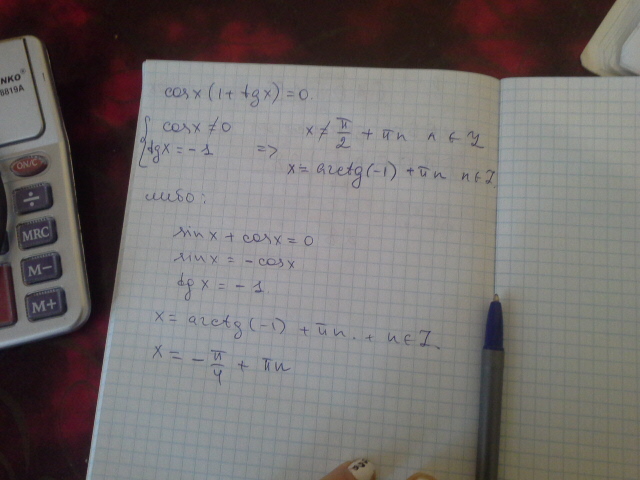 NKO
8819A
ON/C
÷
MRC
M-
M+
cosx(1 + tgx) = 0.
{ cosx ≠ 0
tgx = -1
=> x ≠ π/2 + πn n ∈ Z
x = arctg(-1) + πn n ∈ Z
либо:
sinx + cosx = 0
sinx = -cosx
tgx = -1
x = arctg(-1) + πn. + n ∈ Z.
x = -π/4 + πn